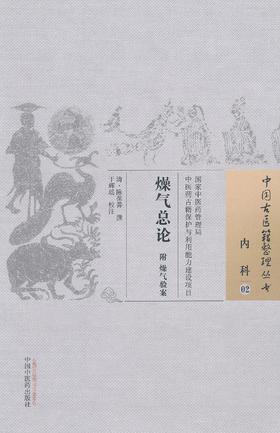 中国古医籍整理丛书
内科
02
国家中医药管理局
中医药古籍保护与利用能力建设项目
燥气总论
附 燥气验案
清·陈葆善 撰
于峥瑶 校注
中国中医药出版社